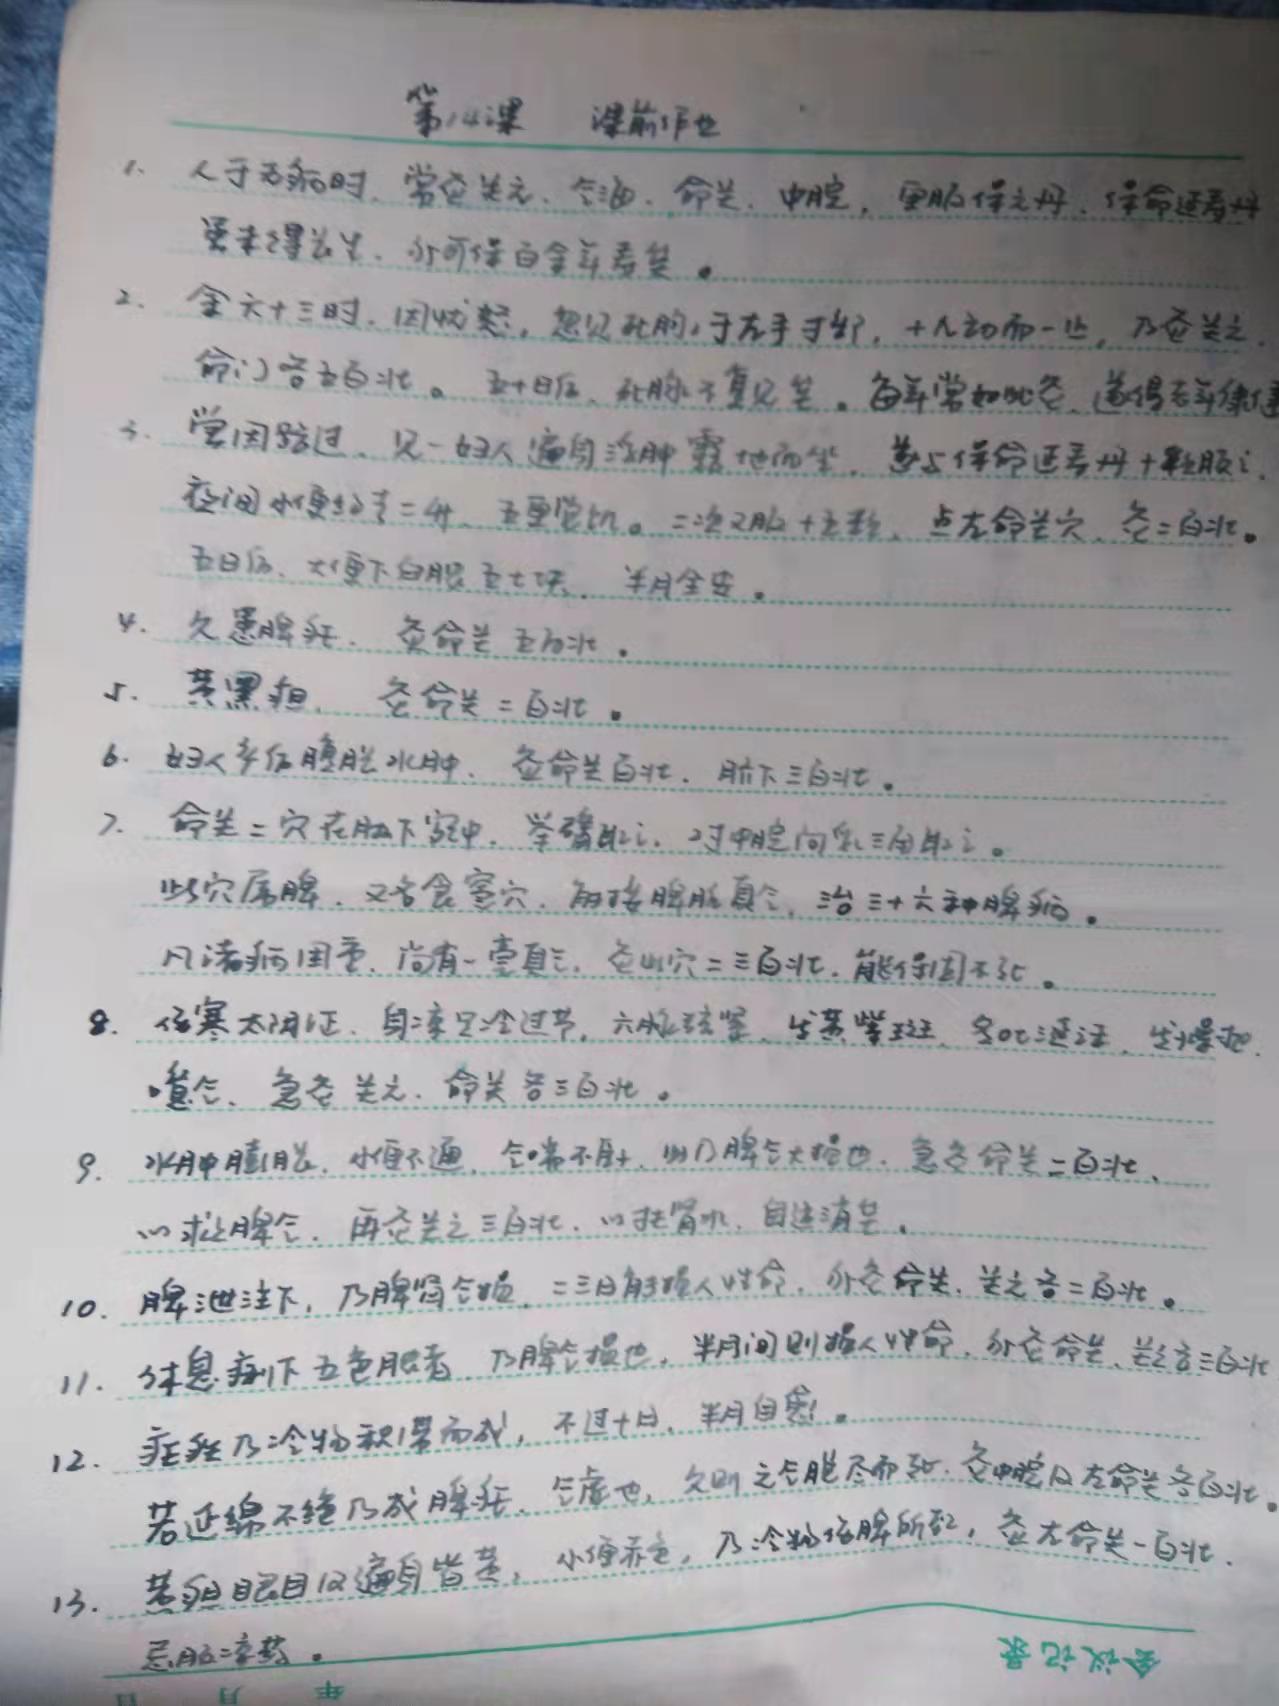 第14课 课前作业
1. 人于无病时、常灸关元、气海、命关、中脘，更服保元丹、保命延寿丹
虽未得长生、亦可保百余年寿矣。
2. 余六十三时、因忧怒，忽见死脉于左手寸部，十九动而一止，乃灸关元、
命门各五百壮。五十日后、死脉不复见矣。每年常如此灸、遂得老年康健
3. 尝因路过、见一妇人遍身浮肿露地而坐，遂与保命延寿丹十粒服之、
夜间小便约 二升、五更觉饥。二次又服十五粒、点左命关穴、灸二百壮。
五日后、大便下白脓五七块、半月全安。
4. 久患脾疟、灸命关五百壮。
5. 黄黑疸、灸命关二百壮。
6. 妇人产后腹胀水肿、灸命关百壮、脐下三百壮。
7. 命关二穴在胁下宛中、举臂取之、对中脘向乳三角取之。
此穴属脾、又名食窦穴、能接脾脏真气、治三十六种脾病。
凡诸病困重、尚有一毫真气、灸此穴二三百壮、能保固不死。
8. 伤寒太阴证、身凉足冷过节，六脉弦紧，发黄紫斑、多吐涎沫，发燥热、
噫气、急灸关元、命关各三百壮。
9. 水肿膨胀、小便不通、气喘不卧、此乃脾气大损也、急灸命关二百壮、
以救脾气、再灸关元三百壮、以扶肾水、自运消矣。
10. 脾泄注下，乃脾肾气损、二三日能损人性命，亦灸命关、关元各二百壮。
11. 休息痢下五色脓者 乃脾气损也，半月间则损人性命，亦灸命关、关元各三百壮
12. 痎疟乃冷物积滞而成，不过十日、半月自愈。
若延绵不绝乃成脾疟、气虚也，久则元气脱尽而死、灸中脘及左命关各百壮。
13. 黄疸眼目及遍身皆黄，小便赤色，乃冷物伤脾所致，灸左命关一百壮、
忌服凉药。
会议记录
年 月 日